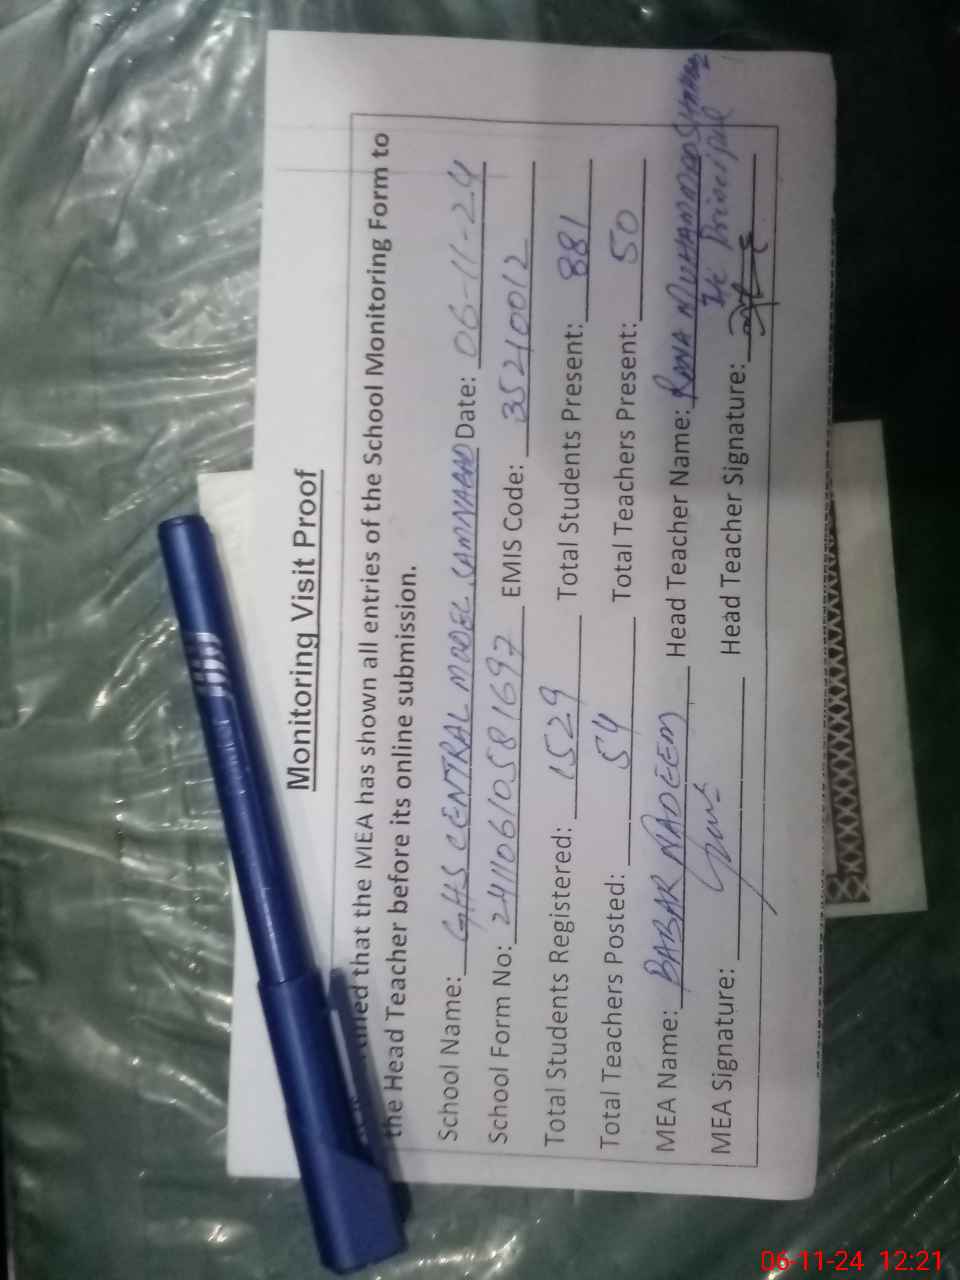 Monitoring Visit Proof
that the MEA has shown all entries of the School Monitoring Form to
the Head Teacher before its online submission.
School Name: GHS CENTRAL MODEL SAMNABAD Date: 06-11-24
School Form No: 2411061058 1697 EMIS Code: 35210012
Total Students Registered: 1529 Total Students Present: 881
Total Teachers Posted: 54 Total Teachers Present: 50
MEA Name: BABAR NADEEM Head Teacher Name: RANA MUHAMMAD
I/c Principal
MEA Signature: Head Teacher Signature:
06-11-24 12:21